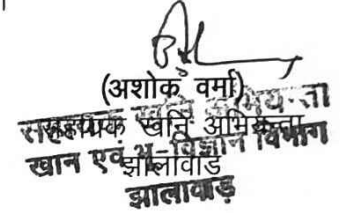 (अशोक वर्मा)
सहायक खनि अभियन्ता
सहायक खनि अभियन्ता
खान एवं भू-विज्ञान विभाग
झालावाड
झालावाड़